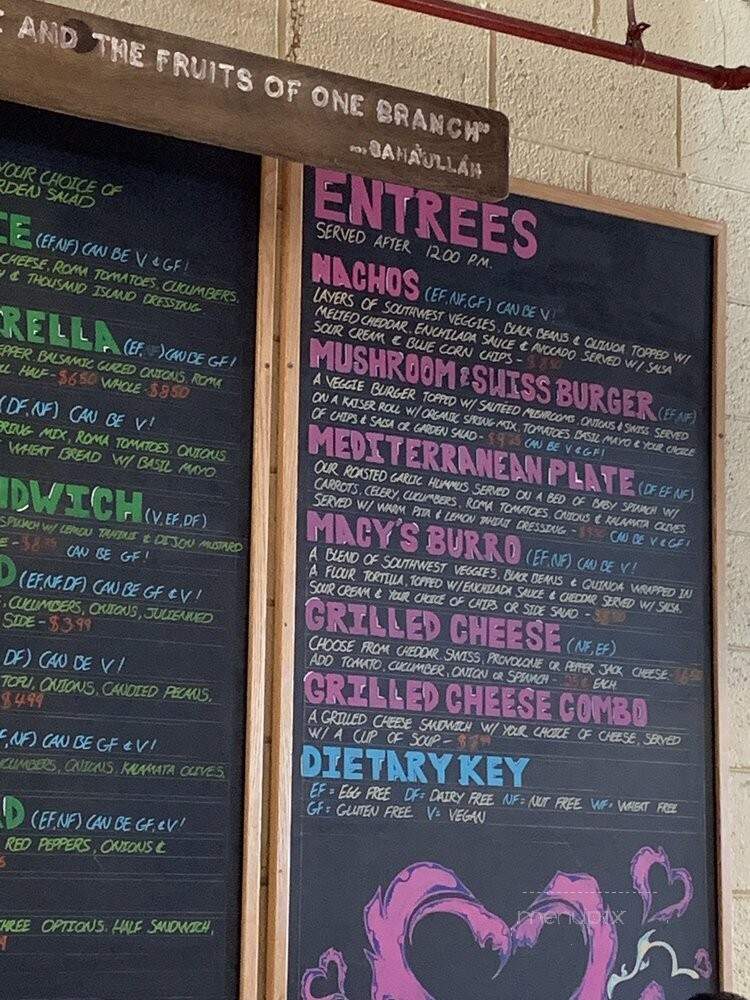 AND THE FRUITS OF ONE BRANCH"
...BAHÁ'ULLÁH
YOUR CHOICE OF
GARDEN SALAD
(EF,NF) CAN BE V & GF!
CHEESE, ROMA TOMATOES, CUCUMBERS,
& THOUSAND ISLAND DRESSING
RELLA (EF, ) CAN BE GF!
PEPPER BALSAMIC GLAZED ONIONS, ROMA
HALF - $6.50 WHOLE - $8.50
(DF,NF) CAN BE V!
SPRING MIX, ROMA TOMATOES, ONIONS
WHEAT BREAD W/ BASIL MAYO
NDWICH (V, EF, DF)
SPINACH W/ LEMON TAHINI & DIJON MUSTARD
CAN BE GF!
D (EF,NF,DF) CAN BE GF & V!
, CUCUMBERS, ONIONS, JULIENNED
SIDE - $3.99
DF) CAN BE V!
TOFU, ONIONS, CANDIED PECANS,
$4.99
F,NF) CAN BE GF & V!
CUCUMBERS, ONIONS, KALAMATA OLIVES,
D (EF,NF) CAN BE GF & V!
RED PEPPERS, ONIONS &
THREE OPTIONS: HALF SANDWICH,
ENTREES
SERVED AFTER 12:00 P.M.
NACHOS (EF,NF,GF) CAN BE V!
LAYERS OF SOUTHWEST VEGGIES, BLACK BEANS & QUINOA TOPPED W/
MELTED CHEDDAR, ENCHILADA SAUCE & AVOCADO SERVED W/ SALSA
SOUR CREAM & BLUE CORN CHIPS -
MUSHROOM & SWISS BURGER (EF,NF)
A VEGGIE BURGER TOPPED W/ SAUTEED MUSHROOMS, ONIONS & SWISS SERVED
ON A KAISER ROLL W/ ORGANIC SPRING MIX, TOMATOES, BASIL MAYO & YOUR CHOICE
OF CHIPS & SALSA OR GARDEN SALAD - CAN BE V & GF!
MEDITERRANEAN PLATE (DF,EF,NF)
OUR ROASTED GARLIC HUMMUS SERVED ON A BED OF BABY SPINACH W/
CARROTS, CELERY, CUCUMBERS, ROMA TOMATOES, ONIONS & KALAMATA OLIVES
SERVED W/ WARM PITA & LEMON TAHINI DRESSING - CAN BE V & GF!
MACY'S BURRO (EF,NF) CAN BE V!
A BLEND OF SOUTHWEST VEGGIES, BLACK BEANS & QUINOA WRAPPED IN
A FLOUR TORTILLA, TOPPED W/ ENCHILADA SAUCE & CHEDDAR SERVED W/ SALSA,
SOUR CREAM & YOUR CHOICE OF CHIPS OR SIDE SALAD -
GRILLED CHEESE (NF,EF)
CHOOSE FROM CHEDDAR, SWISS, PROVOLONE OR PEPPER JACK CHEESE
ADD TOMATO, CUCUMBER, ONION OR SPINACH - EACH
GRILLED CHEESE COMBO
A GRILLED CHEESE SANDWICH W/ YOUR CHOICE OF CHEESE, SERVED
W/ A CUP OF SOUP -
DIETARY KEY
EF= EGG FREE DF= DAIRY FREE NF= NUT FREE WF= WHEAT FREE
GF= GLUTEN FREE V= VEGAN
menupix